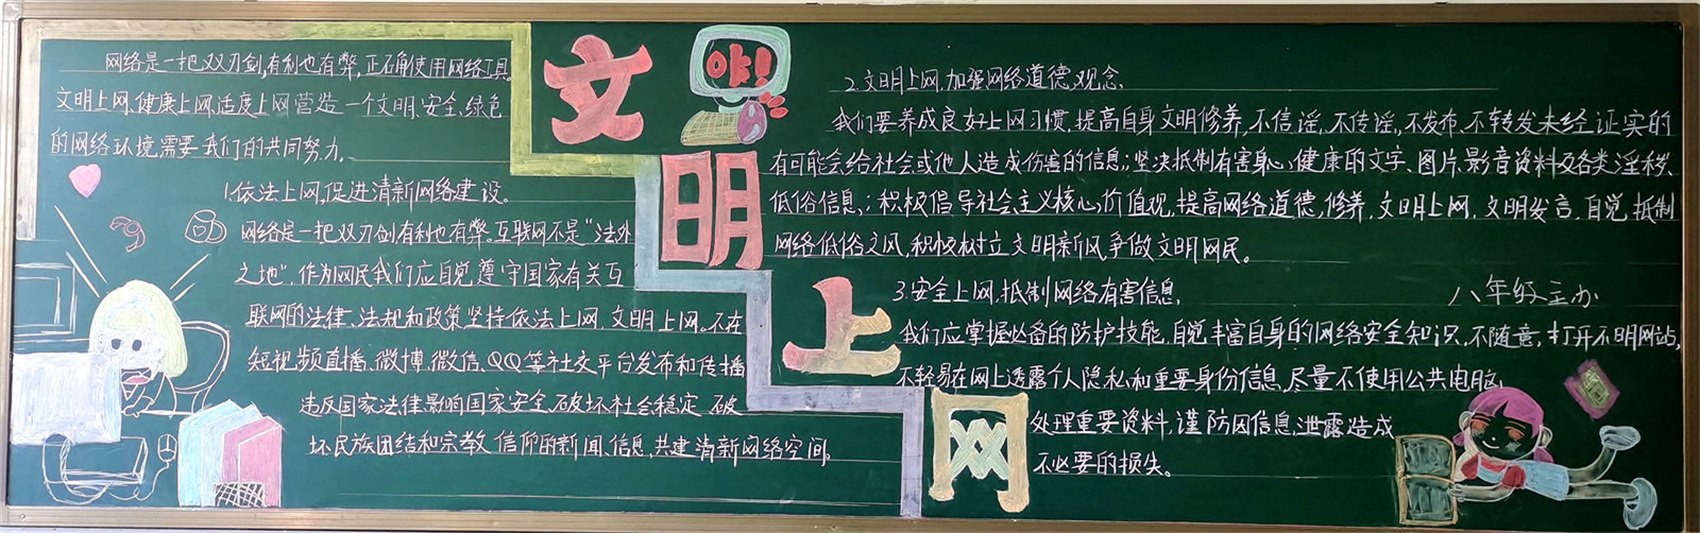 网络是一把双刃剑,有利也有弊,正确使用网络工具。
文明上网、健康上网、适度上网营造一个文明、安全、绿色
的网络环境需要我们的共同努力。
1.依法上网,促进清新网络建设。
网络是一把双刃剑有利也有弊。互联网不是“法外
之地”,作为网民我们应自觉遵守国家有关互
联网的法律、法规和政策坚持依法上网,文明上网。不在
短视频直播、微博、微信、QQ等社交平台发布和传播
违反国家法律影响国家安全、破坏社会稳定、破
坏民族团结和宗教信仰的新闻、信息,共建清新网络空间。
文
明
上
网
呀!
2.文明上网,加强网络道德观念、
我们要养成良好上网习惯,提高自身文明修养,不信谣,不传谣,不发布、不转发未经证实的
有可能会给社会或他人造成伤害的信息;坚决抵制有害身心健康的文字、图片、影音资料及各类淫秽、
低俗信息;积极倡导社会主义核心价值观,提高网络道德修养,文明上网,文明发言,自觉抵制
网络低俗之风,积极树立文明新风,争做文明网民。
3.安全上网,抵制网络有害信息、
八年级主办
我们应掌握必备的防护技能,自觉丰富自身的网络安全知识,不随意打开不明网站,
不轻易在网上透露个人隐私和重要身份信息,尽量不使用公共电脑、
处理重要资料,谨防因信息泄露造成
不必要的损失。